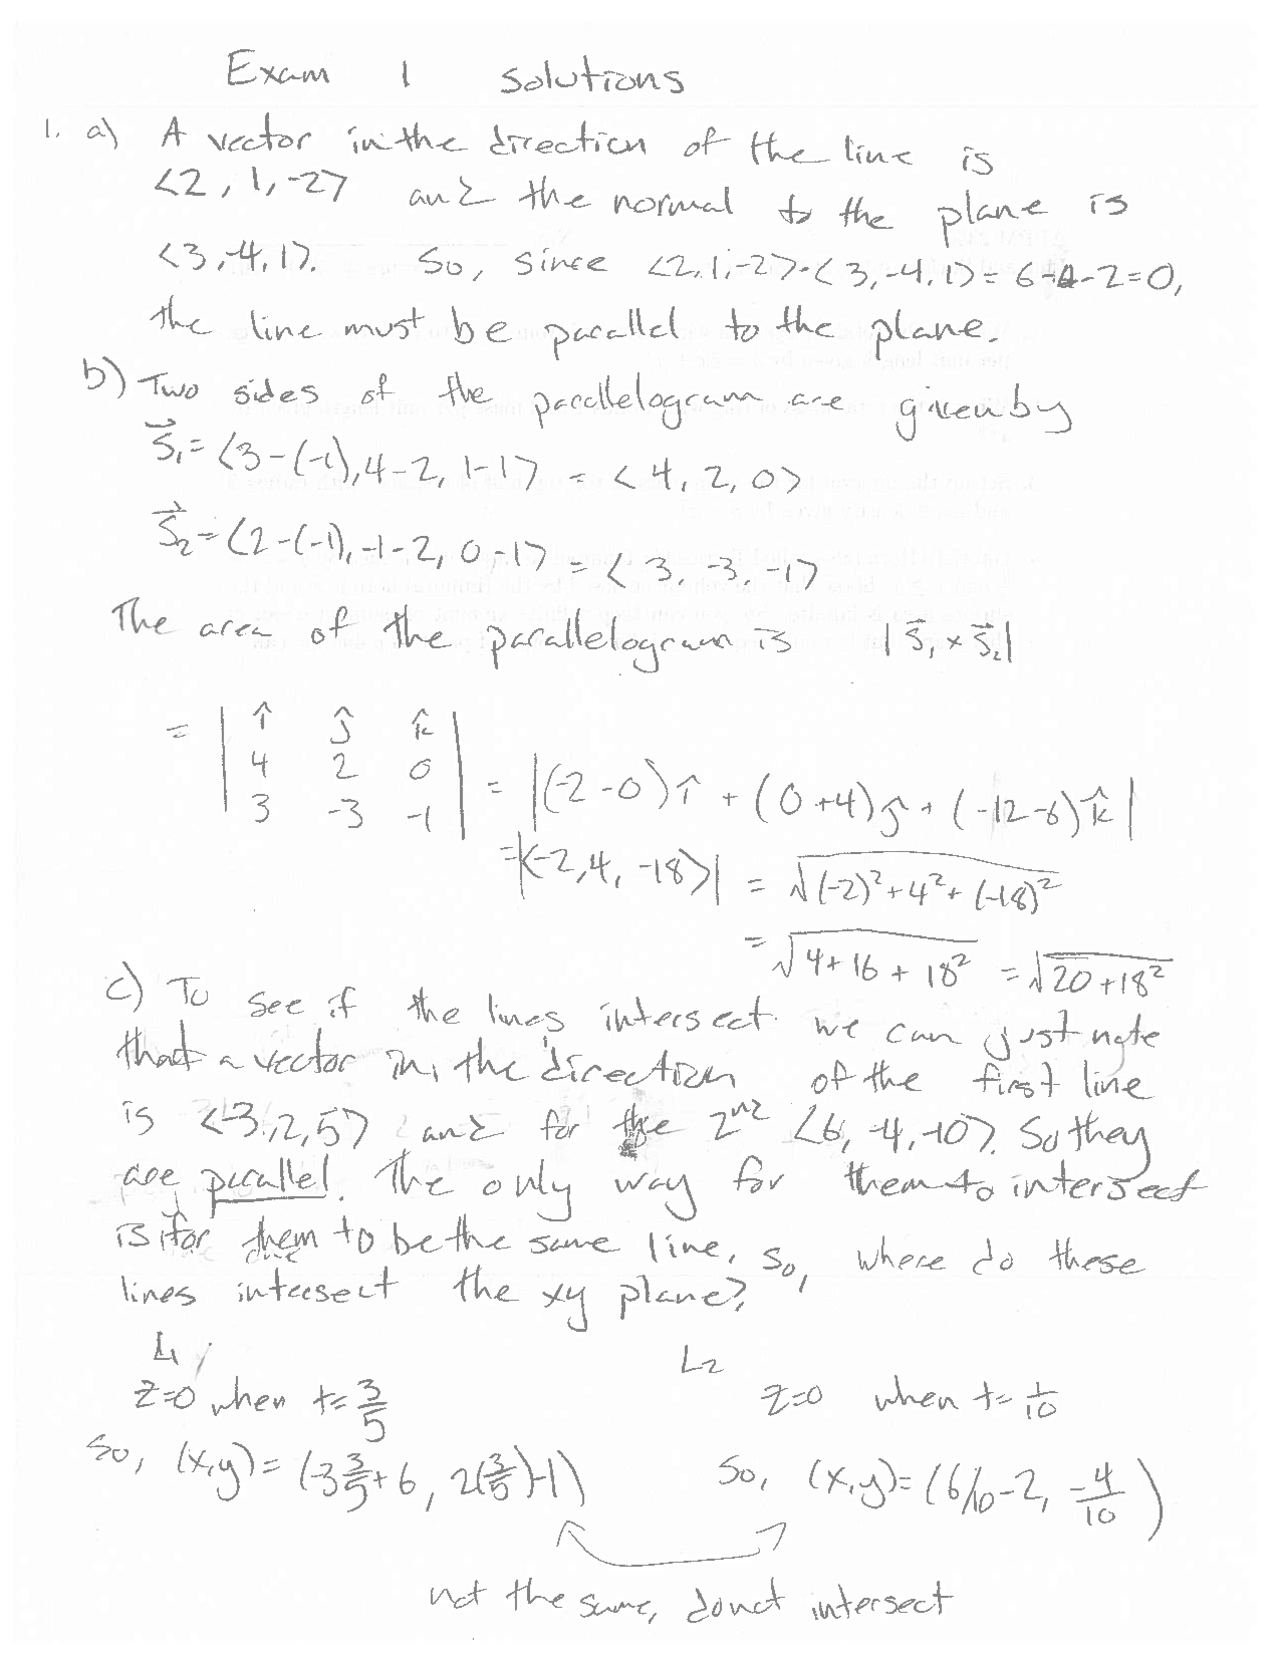 Exam 1 Solutions
1. a) A vector in the direction of the line is
<2, 1, -2> and the normal to the plane is
<3, -4, 1>. So, since <2, 1, -2>·<3, -4, 1> = 6-4-2=0,
the line must be parallel to the plane.
b) Two sides of the parallelogram are given by
S⃗₁ = <3-(-1), 4-2, 1-1> = <4, 2, 0>
S⃗₂ = <2-(-1), -1-2, 0-1> = <3, -3, -1>
The area of the parallelogram is |S⃗₁ × S⃗₂|
= | î ĵ k̂ |
| 4 2 0 | = |(-2-0)î + (0+4)ĵ + (-12-6)k̂|
| 3 -3 -1 |
= |<-2, 4, -18>| = √((-2)²+4²+(-18)²)
= √(4+16+18²) = √(20+18²)
c) To see if the lines intersect we can just note
that a vector in the direction of the first line
is <-3, 2, 5> and for the 2nd <6, -4, -10>. So they
are parallel. The only way for them to intersect
is for them to be the same line. So, where do these
lines intersect the xy plane?
L₁ L₂
z=0 when t=3/5 z=0 when t=1/10
So, (x,y) = (-3 3/5 + 6, 2(3/5)-1) So, (x,y) = (6/10-2, -4/10)
not the same, do not intersect